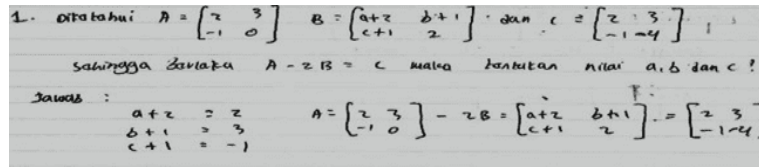 1. Diketahui A = [2 3 -1 0] B = [a+2 b+1 c+1 2] . dan c = [2 3 -1 -4]
sehingga berlaku A - 2B = C maka tentukan nilai a, b dan c !
Jawab :
a+2 = 2 A = [2 3 -1 0] - 2B = [a+2 b+1 c+1 2] . = [2 3 -1 -4]
b+1 = 3
c+1 = -1